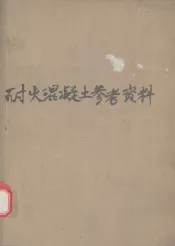 耐火混凝土参考资料